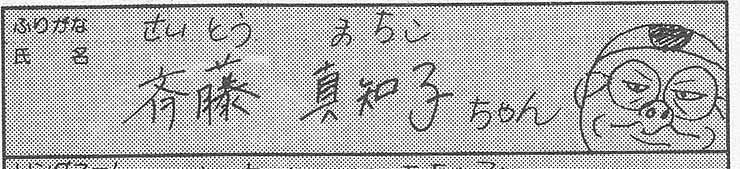 ふりがな せいとう まちこ
氏名 斉藤 真知子 ちゃん